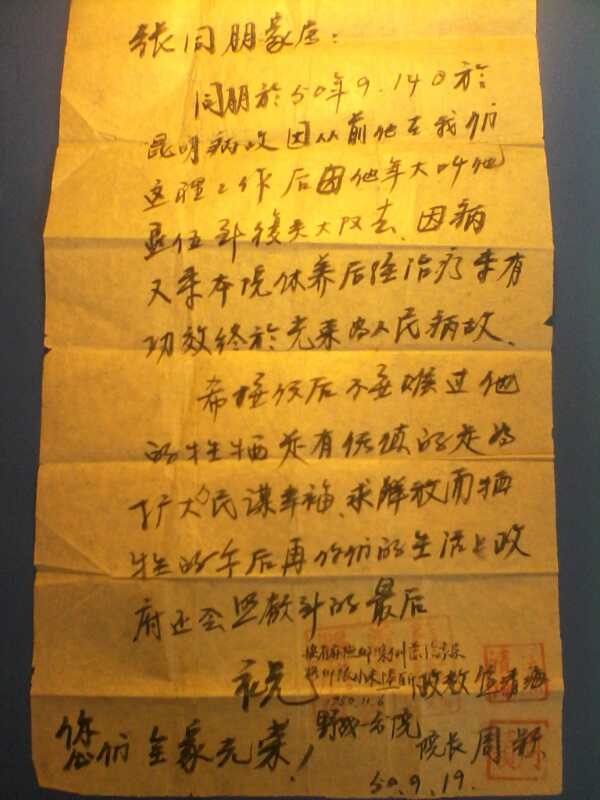 张同朋家屋：
同朋於50年9.14日於
昆明病故因从前他在我们
这裡工作后因他年大叫他
退伍到後夹大队去、因病
又来本院休养后经治疗未有
功效终於光荣为人民病故、
希接信后不要难过他
的牲牺是有价值的是为
扩大人民谋幸福、求解放而牺
牲的今后再你们的生活上政
府还会照顾到的最后
祝
您们全家光荣！
1950.11.6
政教
野战一分院
院长周
50.9.19.